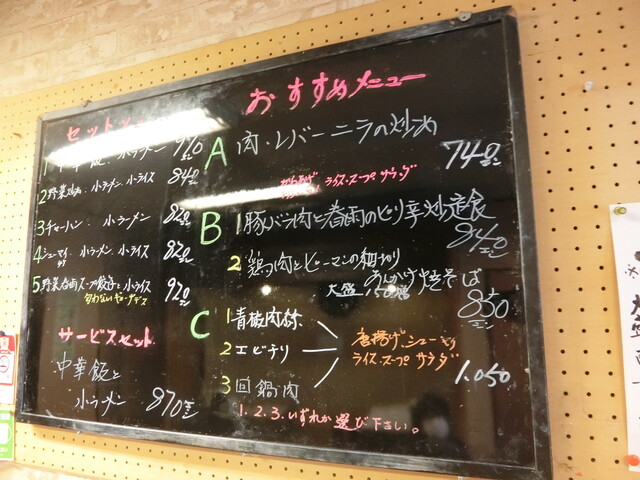 おすすめメニュー
A 肉・レバーニラの炒め
740
ライス・スープ サラダ
B 1 豚バラ肉と春雨のピリ辛炒定食
840
2 鶏肉とピーマンの細切り
あんかけ焼そば
大盛
850
C 1 青椒肉絲
2 エビチリ
3 回鍋肉
唐揚げ シューマイ
ライス・スープ サラダ
1,050
1.2.3.いずれか選び下さい。
セット
1 中華飯 小ラーメン 910
2 野菜 小ラーメン 小ライス 840
3 チャーハン 小ラーメン 820
4 シューマイ 小ラーメン 小ライス 820
5 野菜春雨スープ餃子と小ライス 920
サービスセット
中華飯と
小ラーメン 870